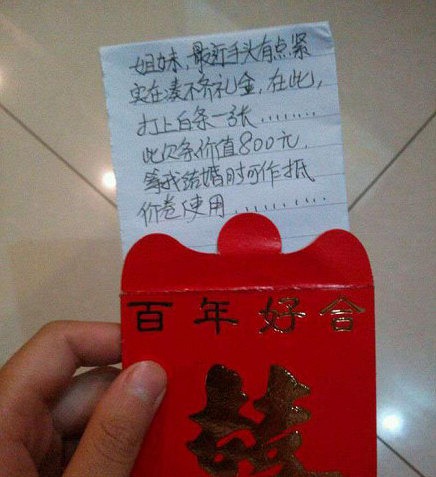 姐妹,最近手头有点紧
实在凑不齐礼金,在此,
打上白条一张………
此欠条价值800元.
等我结婚时可作抵
价卷使用…………
百年好合
囍